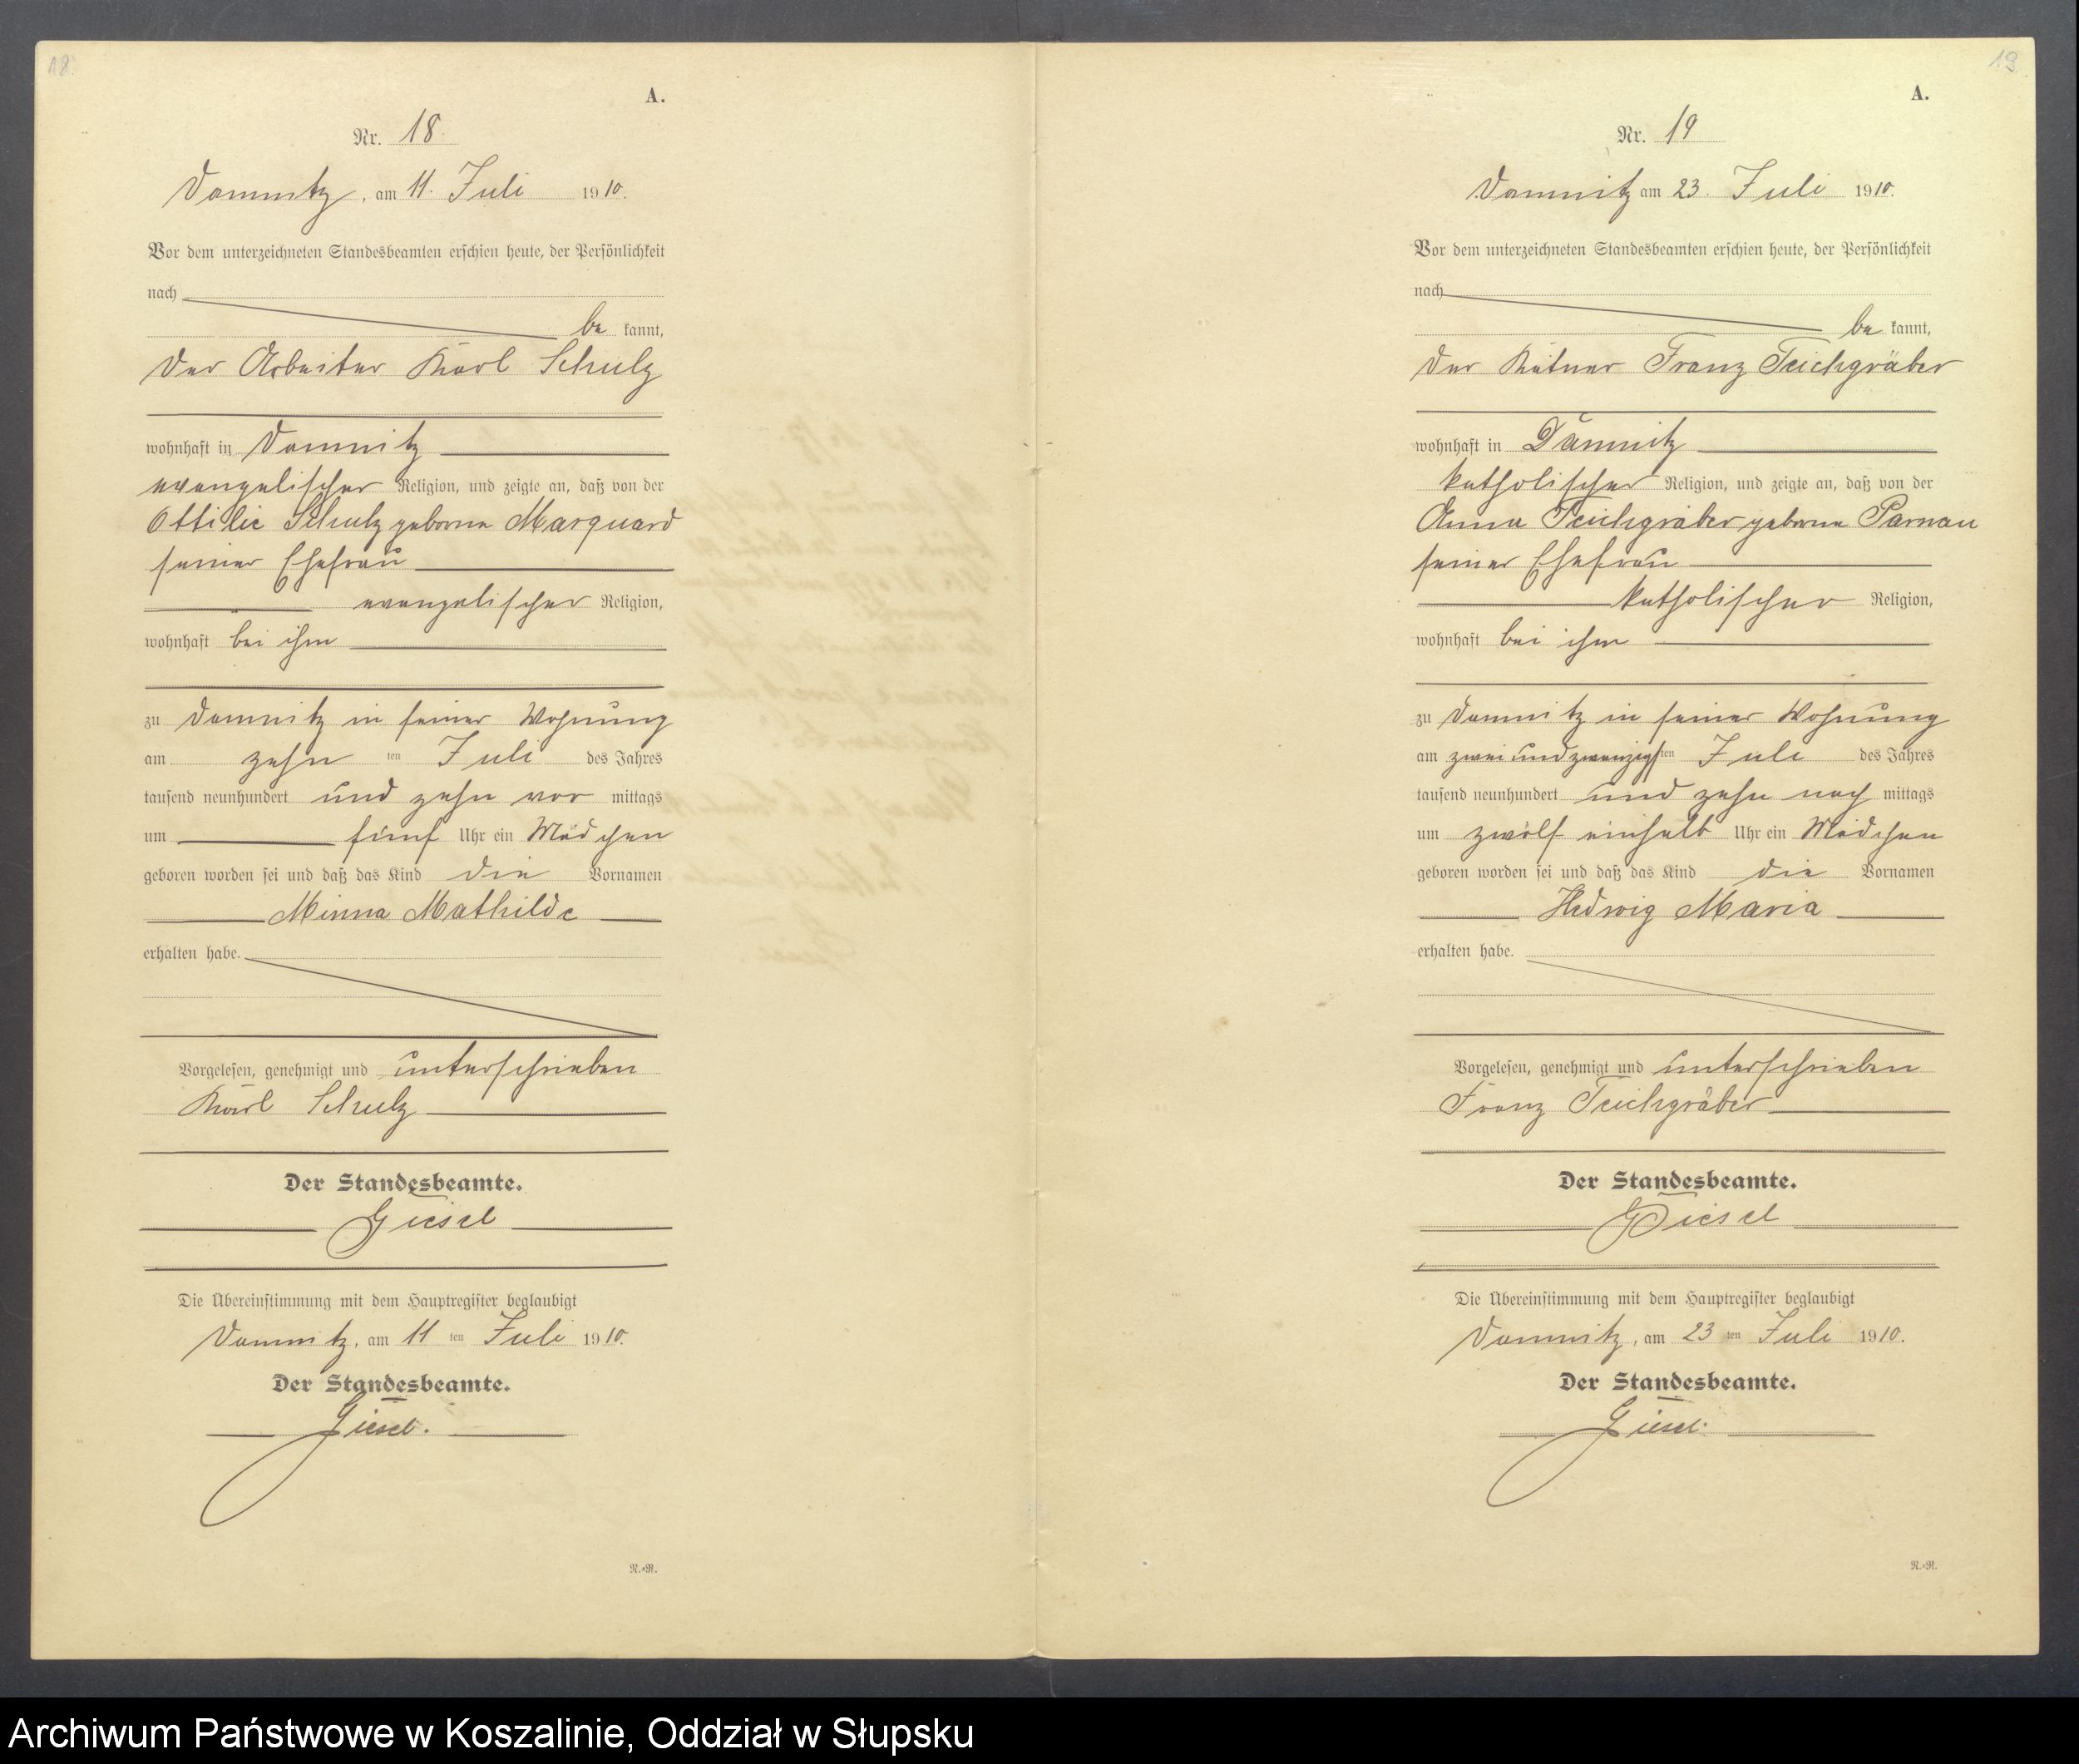 18.
A.
Nr. 18
Damnitz, am 11. Juli 1910.
Vor dem unterzeichneten Standesbeamten erschien heute, der Persönlichkeit
nach
be kannt,
der Arbeiter Karl Schulz
wohnhaft in Damnitz
evangelischer Religion, und zeigte an, daß von der
Ottilie Schulz geborne Marquard
seiner Ehefrau
evangelischer Religion,
wohnhaft bei ihm
zu Damnitz in seiner Wohnung
am zehn ten Juli des Jahres
tausend neunhundert und zehn vor mittags
um fünf Uhr ein Mädchen
geboren worden sei und daß das Kind die Vornamen
Minna Mathilde
erhalten habe.
Vorgelesen, genehmigt und unterschrieben
Karl Schulz
Der Standesbeamte.
Giesel
Die Übereinstimmung mit dem Hauptregister beglaubigt
Damnitz, am 11 ten Juli 1910.
Der Standesbeamte.
Giesel.
N.-N.
19.
A.
Nr. 19
Damnitz am 23. Juli 1910.
Vor dem unterzeichneten Standesbeamten erschien heute, der Persönlichkeit
nach
be kannt,
der Kätner Franz Teichgräber
wohnhaft in Damnitz
katholischer Religion, und zeigte an, daß von der
Anna Teichgräber geborne Parnau
seiner Ehefrau
katholischer Religion,
wohnhaft bei ihm
zu Damnitz in seiner Wohnung
am zwei und zwanzigsten Juli des Jahres
tausend neunhundert und zehn nach mittags
um zwölf einhalb Uhr ein Mädchen
geboren worden sei und daß das Kind die Vornamen
Hedwig Maria
erhalten habe.
Vorgelesen, genehmigt und unterschrieben
Franz Teichgräber
Der Standesbeamte.
Giesel
Die Übereinstimmung mit dem Hauptregister beglaubigt
Damnitz, am 23 ten Juli 1910.
Der Standesbeamte.
Giesel.
N.-N.
Archiwum Państwowe w Koszalinie, Oddział w Słupsku